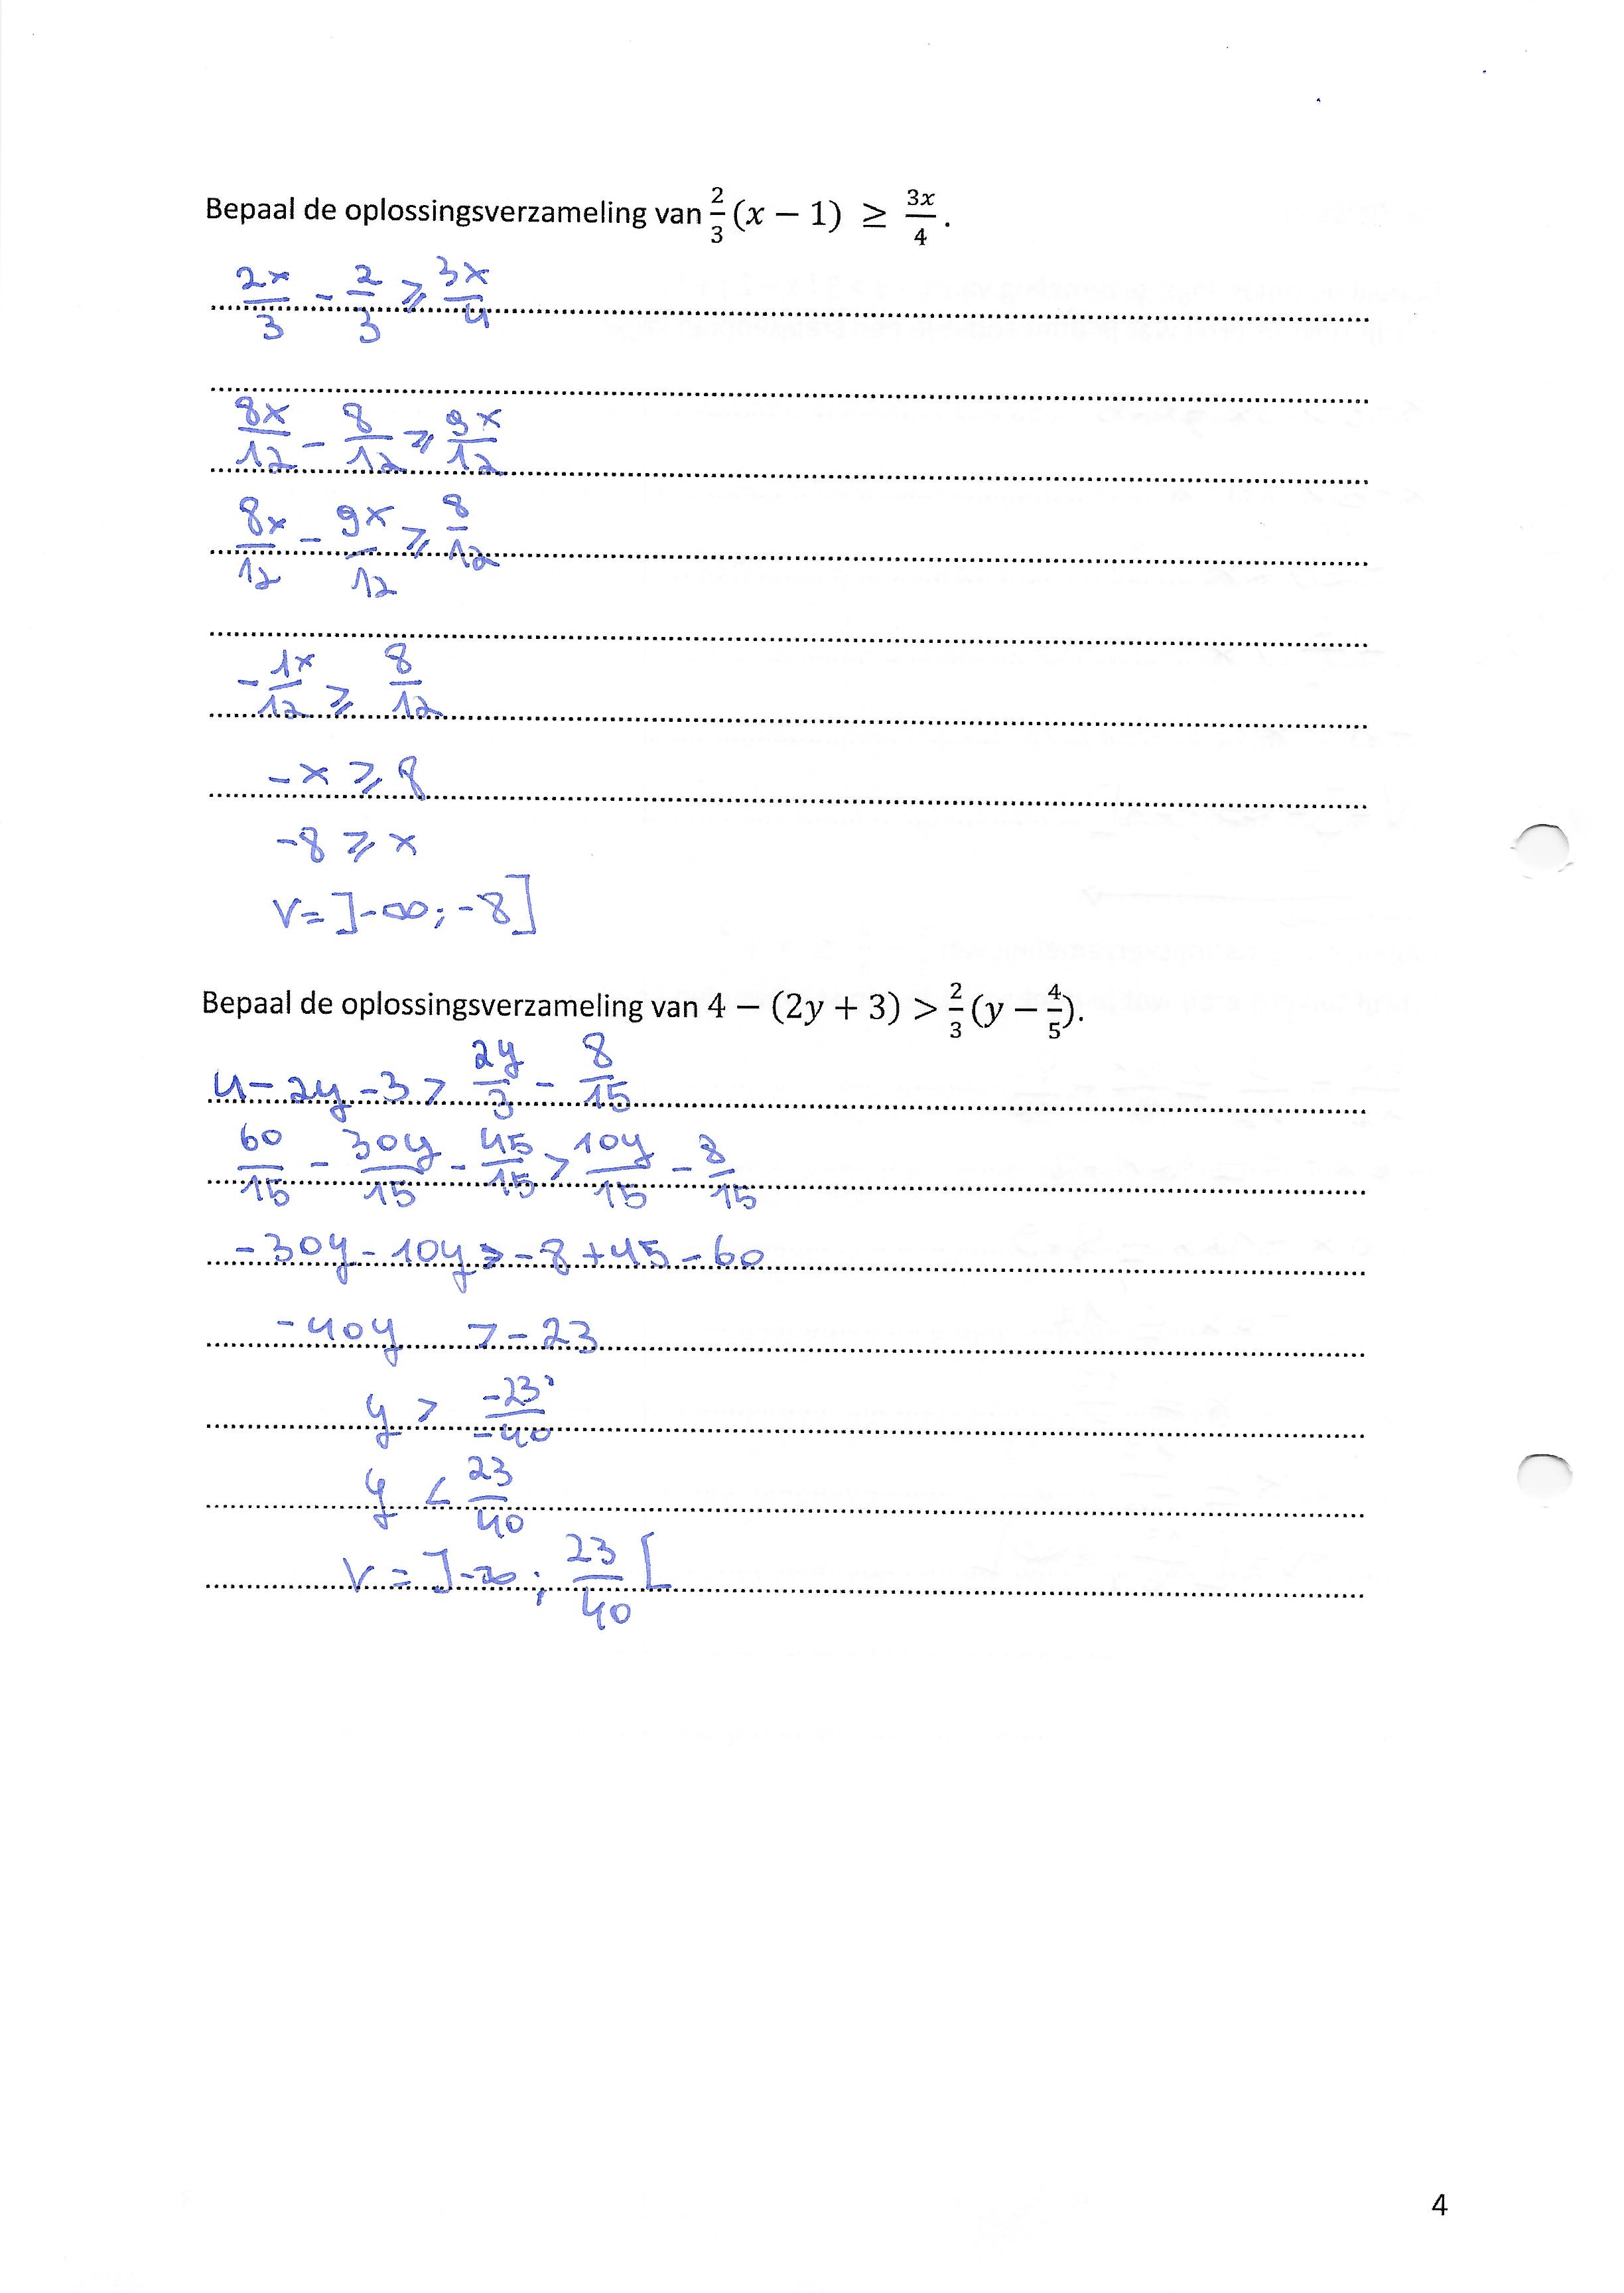 Bepaal de oplossingsverzameling van 2/3 (x − 1) ≥ 3x/4.
2x/3 - 2/3 ≥ 3x/4
8x/12 - 8/12 ≥ 9x/12
8x/12 - 9x/12 ≥ 8/12
- 1x/12 ≥ 8/12
-x ≥ 8
-8 ≥ x
V = ]-∞; -8]
Bepaal de oplossingsverzameling van 4 − (2y + 3) > 2/3 (y − 4/5).
4 - 2y - 3 > 2y/3 - 8/15
60/15 - 30y/15 - 45/15 > 10y/15 - 8/15
-30y - 10y > -8 + 45 - 60
-40y > -23
y > -23/-40
y < 23/40
V = ]-∞; 23/40[
4